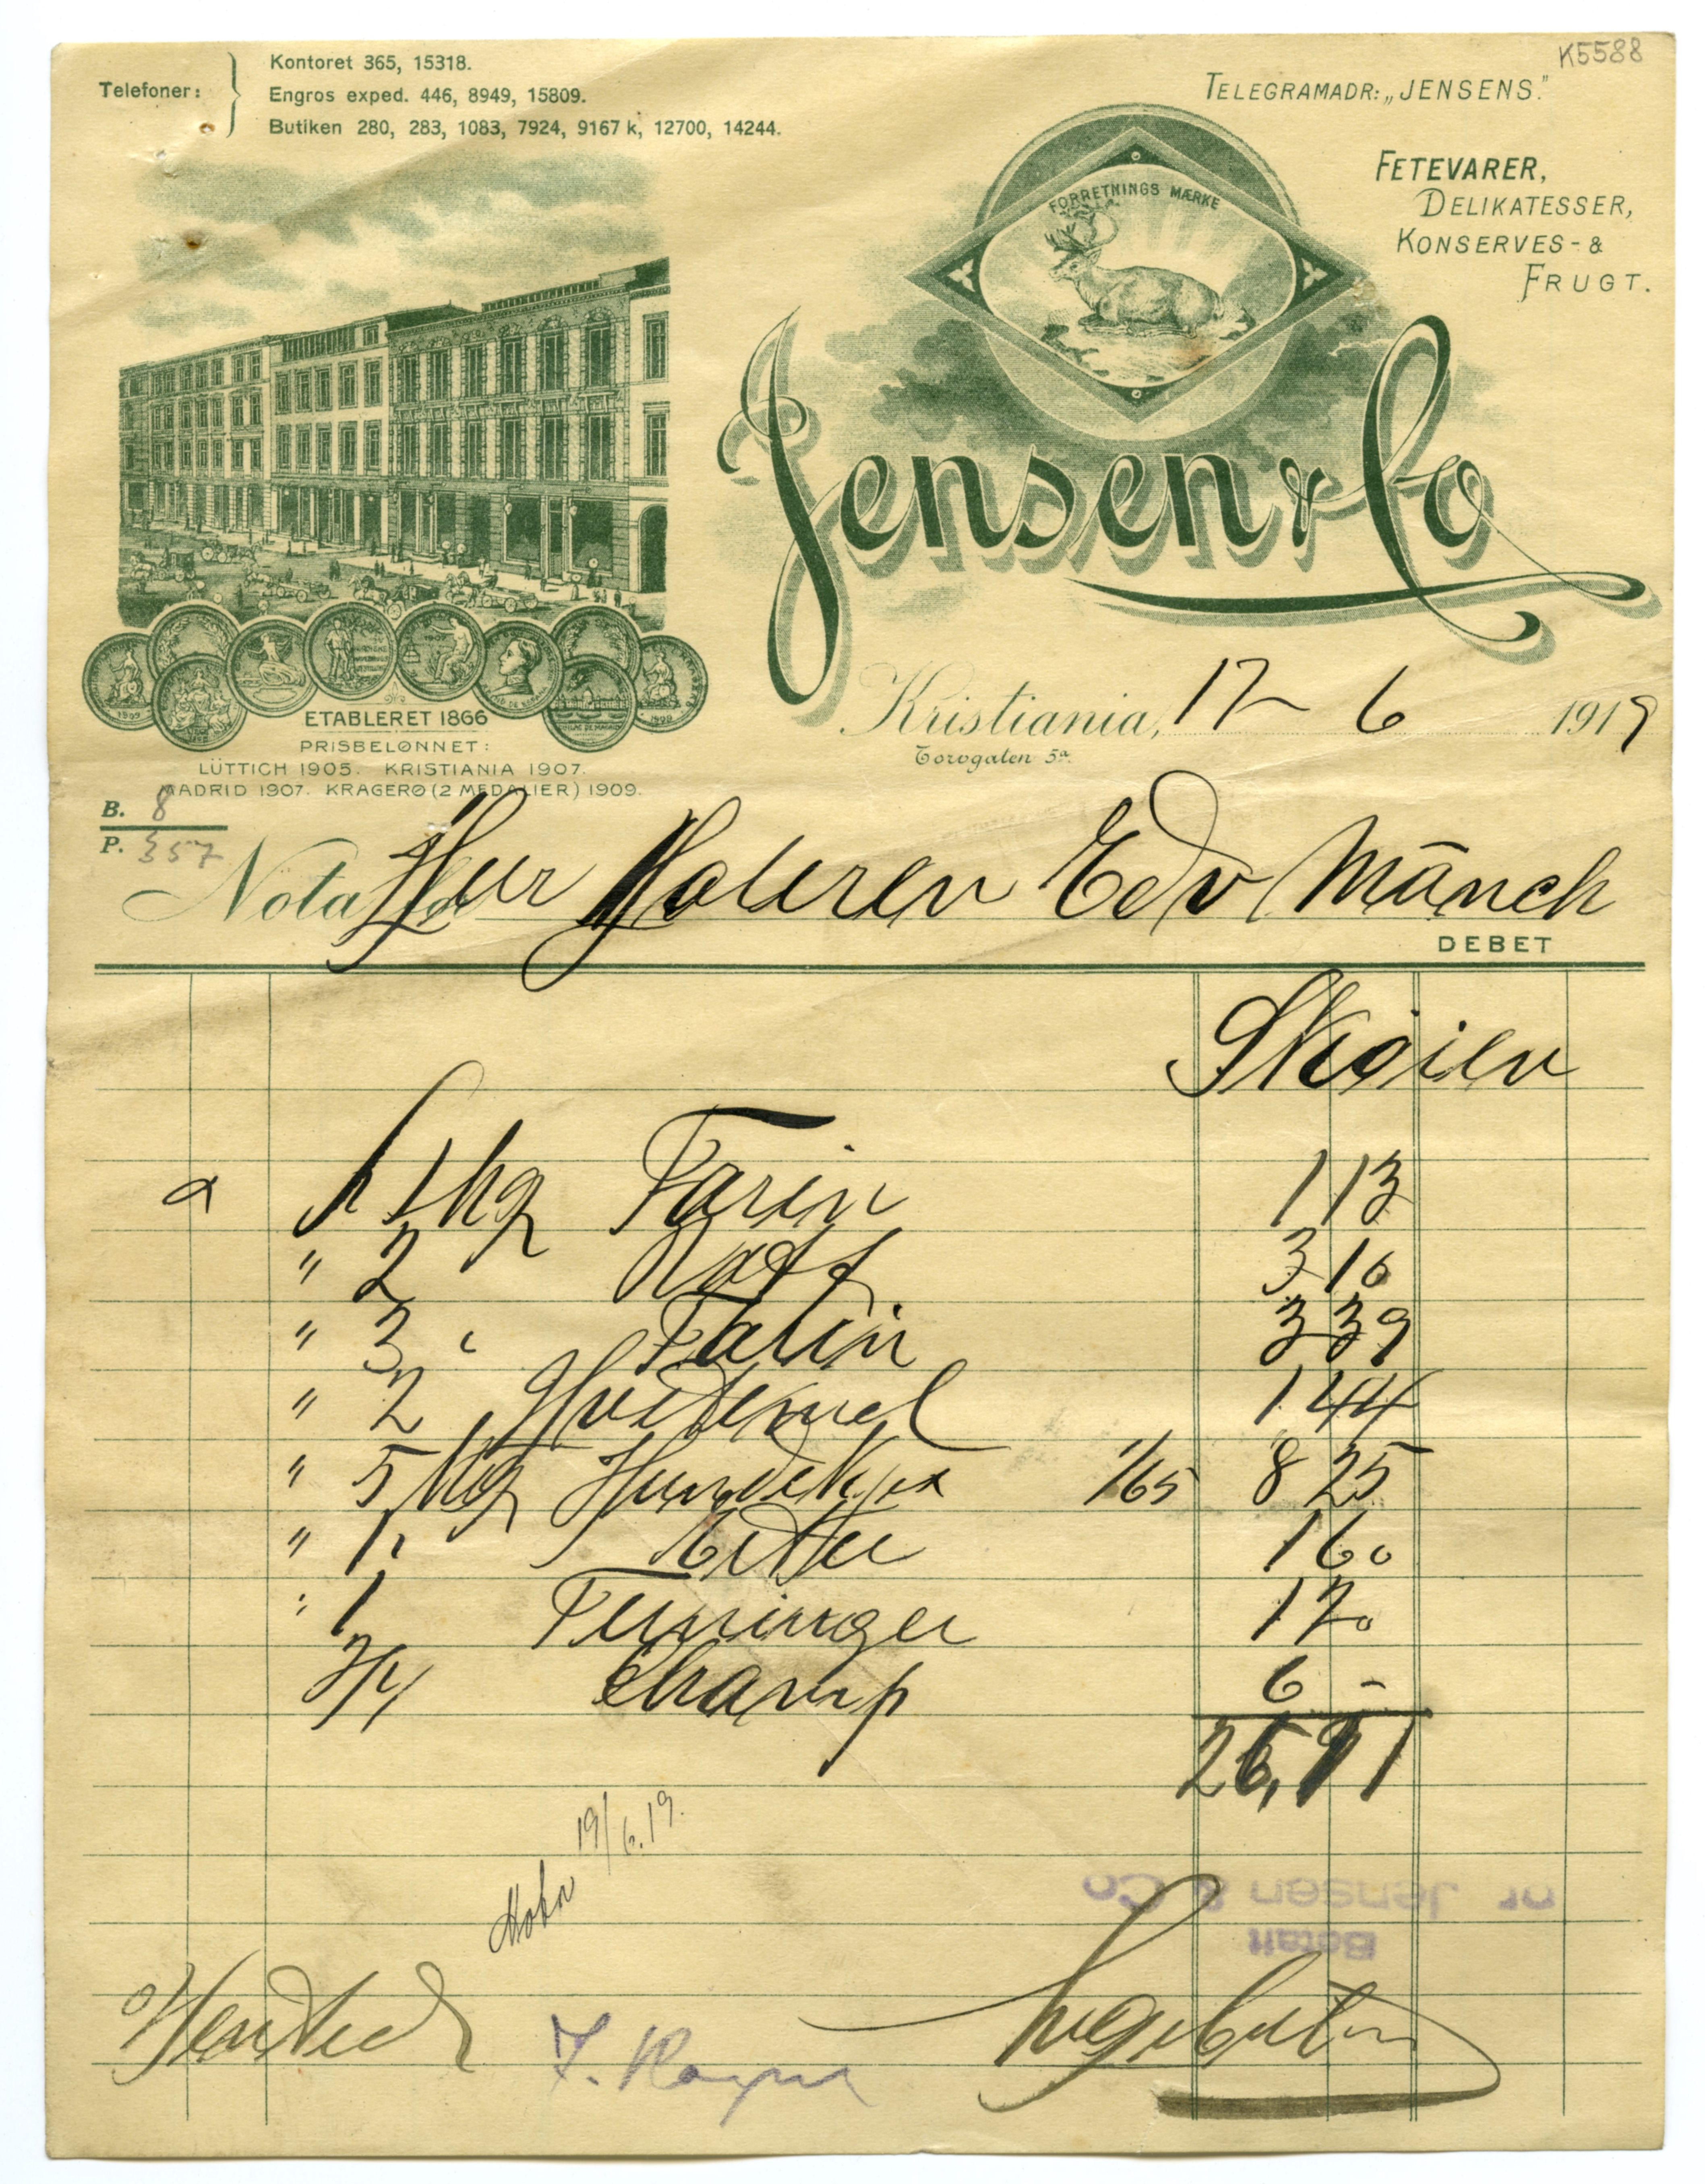 K5588
Telefoner:
Kontoret 365, 15318.
Engros exped. 446, 8949, 15809.
Butiken 280, 283, 1083, 7924, 9167 k, 12700, 14244.
TELEGRAMADR: „JENSENS."
FETEVARER,
DELIKATESSER,
KONSERVES- &
FRUGT.
FORRETNINGS MÆRKE
Jensen & Co
ETABLERET 1866
PRISBELØNNET:
LÜTTICH 1905. KRISTIANIA 1907.
MADRID 1907. KRAGERØ (2 MEDALIER) 1909.
Kristiania, 17 - 6 1919
Torvgaten 5a
B. 8
P. 357
Nota Herr Maleren Edv Münch
DEBET
Skøien
1 kg Farin 1 13
" 2 " 3 10
" 3 " Farin 3 39
" 2 Hvetemel 1 44
" 5 kg Hundekjex 1/65 8 25
" 1 1 60
" 1 1 70
Champ 6 -
19/6.19.
Betalt
pr Jensen & Co